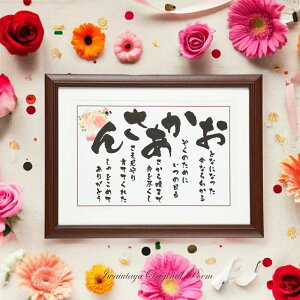 おかあさん
となになった
今ならわかる
ぞくのために
いつの日も
さから晩まで
身を尽くし
さえ見守り
育ててくれた
か
しゃをこめて
ありがとう
Iwaiutaya Original Poem